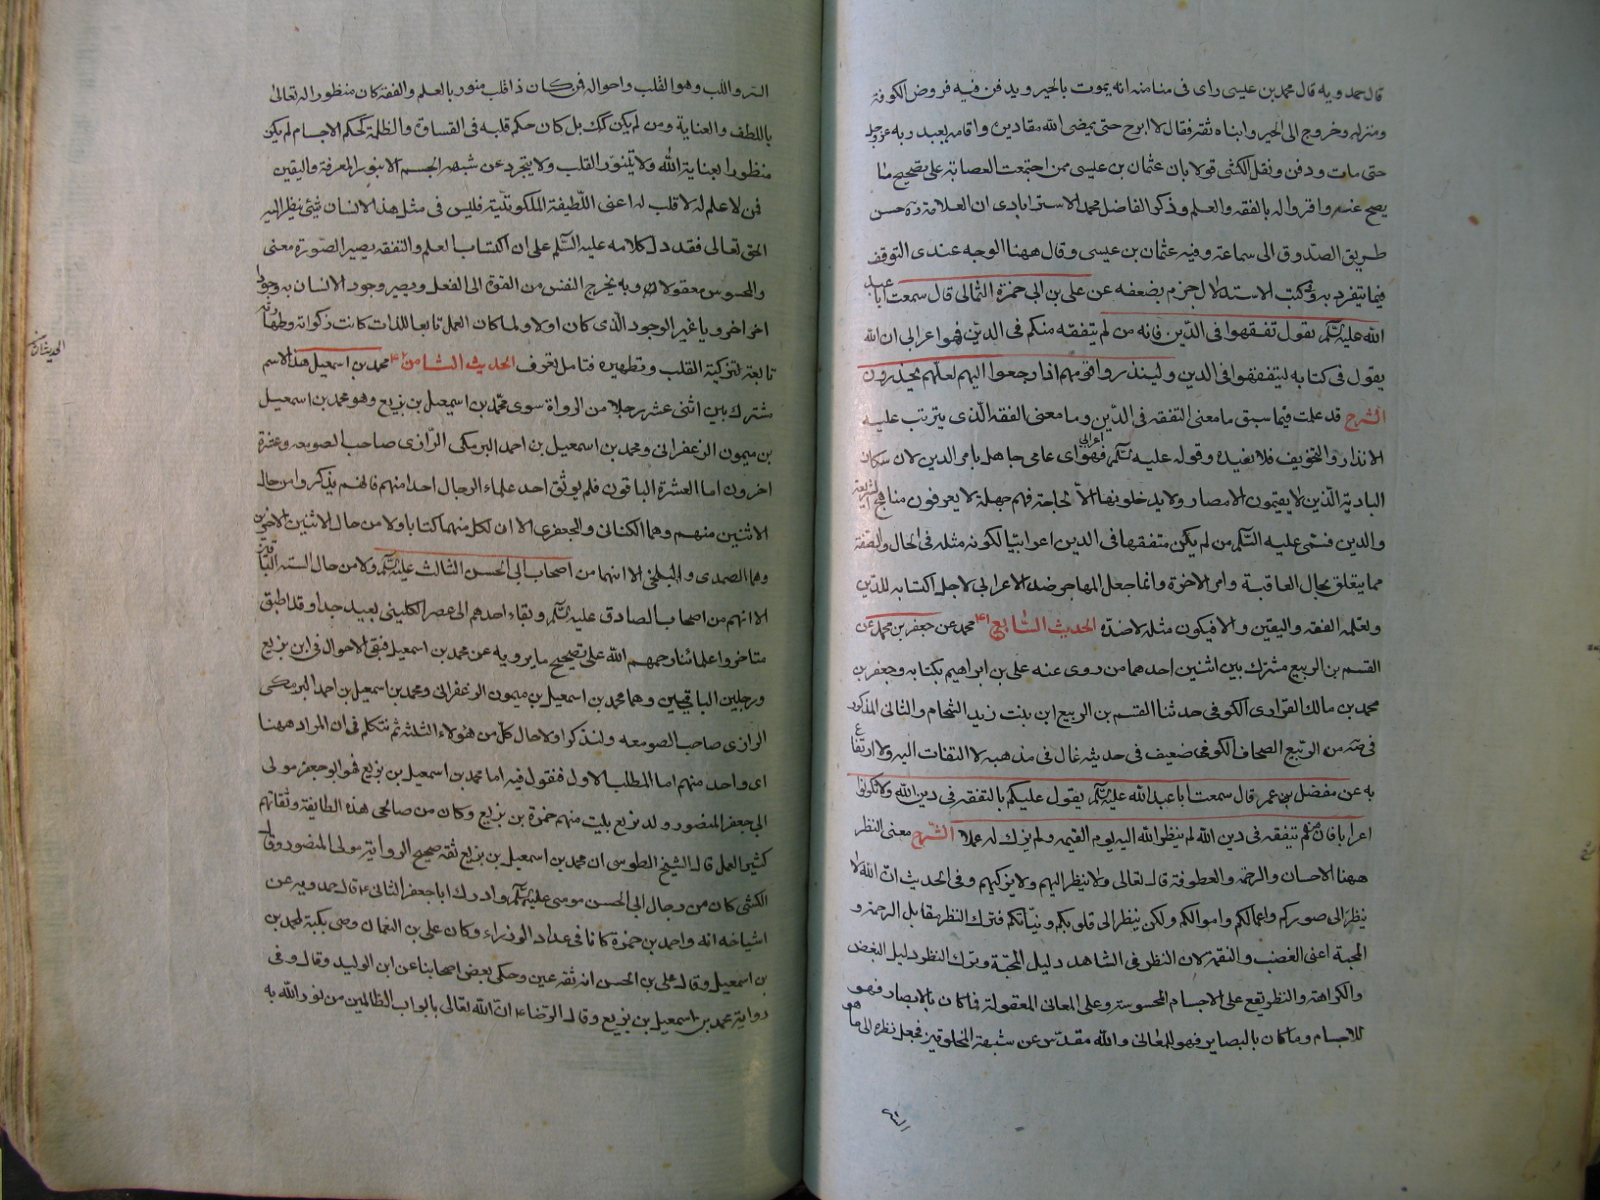 قال حمدويه قال محمد بن عيسى راى فى منامه انه يموت بالحير ويدفن فيه فروض الكوفة
ومنزله وخروج الى الحير وابناه ثقة فقال لا ابرح حتى يمضى الله مقاديره واقام يعبد ربه عزوجل
حتى مات ودفن ونقل الكشى قولا بان عثمان بن عيسى ممن اجتمعت العصابة على تصحيح ما
يصح عنه واقروا له بالفقه والعلم وذكر الفاضل محمد الاسترابادى ان العلامة ره حسن
طريق الصدوق الى سماعة وفيه عثمان بن عيسى وقال ههنا الوجه عندى التوقف
فيما يتفرد به وكتب الاستدلال جزم بضعفه عن على بن ابى حمزة الثمالى قال سمعت ابا عبد
الله عليه السلم يقول تفقهوا فى الدين فانه من لم يتفقه منكم فى الدين فهو اعرابى ان الله
يقول فى كتابه ليتفقهوا فى الدين ولينذروا قومهم اذا رجعوا اليهم لعلهم يحذرون
الشرح قد علمت فيما سبق ما معنى التفقه فى الدين وما معنى الفقه الذى يترتب عليه
الانذار والتخويف فلا نعيده وقوله عليه السلم فهو اعرابى اى عامى جاهل بامر الدين لان سكان
البادية الذين لا يقيمون الامصار ولا يدخلونها الا لحاجة فهم جهلة لا يعرفون مناهج الشريعة
والدين فسمى عليه السلم من لم يكن متفقها فى الدين اعرابيا لكونه مثله فى الحال والصفة
مما يتعلق بحال العاقبة وامر الاخرة وانما جعل المهاجر ضد الاعرابى لاجل اكتسابه للدين
وتعلمه الفقه واليقين والا فيكون مثله لا ضده الحديث السابع ٤١ محمد عن جعفر بن محمد عن
القسم بن الربيع مشترك بين اثنين احدهما من روى عنه على بن ابراهيم بكتابه وجعفر بن
محمد بن مالك الفزارى الكوفى حدثنا القسم بن الربيع ابن بنت زيد الشحام والثانى المذكور
فى صه من الربيع الصحاف الكوفى ضعيف فى حديثه غال فى مذهبه لا التفات اليه ولا ارتفاع
به عن مفضل بن عمر قال سمعت ابا عبد الله عليه السلم يقول عليكم بالتفقه فى دين الله ولا تكونوا
اعرابا فان من لم يتفقه فى دين الله لم ينظر الله اليه يوم القيمه ولم يزك له عملا الشرح معنى النظر
ههنا الاحسان والرحمة والعطوفة قال تعالى ولا ينظر اليهم ولا يزكيهم وفى الحديث ان الله لا
ينظر الى صوركم واعمالكم واموالكم ولكن ينظر الى قلوبكم ونياتكم فترك النظر مقابل الرحمة و
المحبة اعنى الغضب والنقمة لان النظر فى الشاهد دليل المحبة وترك النظر دليل البغض
والكراهة والنظر يقع على الاجسام المحسوسة وعلى المعانى المعقولة فما كان بالابصار فهو
للاجسام وما كان بالبصاير فهو للمعانى والله مقدس عن شبهة المخلوقين فجعل نظره الى ما هو
السر واللب وهو القلب واحواله فمن كان ذا قلب منور بالعلم والفقه كان منظورا له تعالى
باللطف والعناية ومن لم يكن كك بل كان حكم قلبه فى القساوة والظلمة كحكم الاجسام لم يكن
منظورا بعناية الله ولا يتنور القلب ولا يتجرد عن شبهة الجسم الا بنور المعرفة واليقين
فمن لا علم له لا قلب له اعنى اللطيفة الملكوتية فليس فى مثل هذا الانسان شئ ينظر اليه
الحق تعالى فقد دل كلامه عليه السلم على ان اكتساب العلم والتفقه يصير الصورة معنى
والمحسوس معقولا وبه يخرج النفس من القوة الى الفعل ويصير وجود الانسان به وجودا
اخر اخرويا غير الوجود الذى كان اولا ولما كان العمل تابعا للذات كانت زكواته وطهارته
تابعة لتزكية القلب وتطهيره فتامل تعرف الحديث الثامن ٤٢ محمد بن اسمعيل هذا الاسم
الحديث الثامن
مشترك بين اثنى عشر رجلا من الرواة سوى محمد بن اسمعيل بن بزيع وهو محمد بن اسمعيل
بن ميمون الزعفرانى ومحمد بن اسمعيل بن احمد البرمكى الرازى صاحب الصومعه وعشرة
اخرون اما العشرة الباقون فلم يوثق احد علماء الرجال احدا منهم فانهم يذكروا من حال
الاثنين منهم وهما الكنانى والجعفرى الا ان لكل منهما كتابا ولا من حال الاثنين الاخرين
وهما الصمدى والبلخى الا انهما من اصحاب ابى الحسن الثالث عليه السلم ولا من حال الستة الباقية
الا انهم من اصحاب الصادق عليه السلم وبقاء احدهم الى عصر الكلينى بعيد جدا وقد اطبق
متاخروا علمائنا رحمهم الله على تصحيح ما يرويه عن محمد بن اسمعيل فبقى الاحوال فى ابن بزيع
ورجلين الباقيين وهما محمد بن اسمعيل بن ميمون الزعفرانى ومحمد بن اسمعيل بن احمد البرمكى
الرازى صاحب الصومعه ولنذكر اولا حال كل من هؤلاء الثلثة ثم نتكلم فى ان المراد ههنا
اى واحد منهم اما المطلب الاول فنقول فيه اما محمد بن اسمعيل بن بزيع فهو ابو جعفر مولى
ابى جعفر المنصور ولد بزيع بيت منهم حمزة بن بزيع وكان من صالحى هذه الطايفة وثقاتهم
كثير العمل قال الشيخ الطوسى ان محمد بن اسمعيل بن بزيع ثقة صحيح الرواية مولى المنصور وقال
الكشى كان من رجال ابى الحسن موسى عليه السلم وادرك ابا جعفر الثانى ع قال حمدويه عن
اشياخه انه واحمد بن حمزة كانا فى عداد الوزراء وكان على بن النعمان وصى بكتبه لمحمد بن
بن اسمعيل وقال على بن الحسن انه ثقة عين وحكى بعض اصحابنا عن ابن الوليد وقال وفى
رواية محمد بن اسمعيل بن بزيع وقال الرضا ع ان الله تعالى بابواب الظالمين من نور الله به